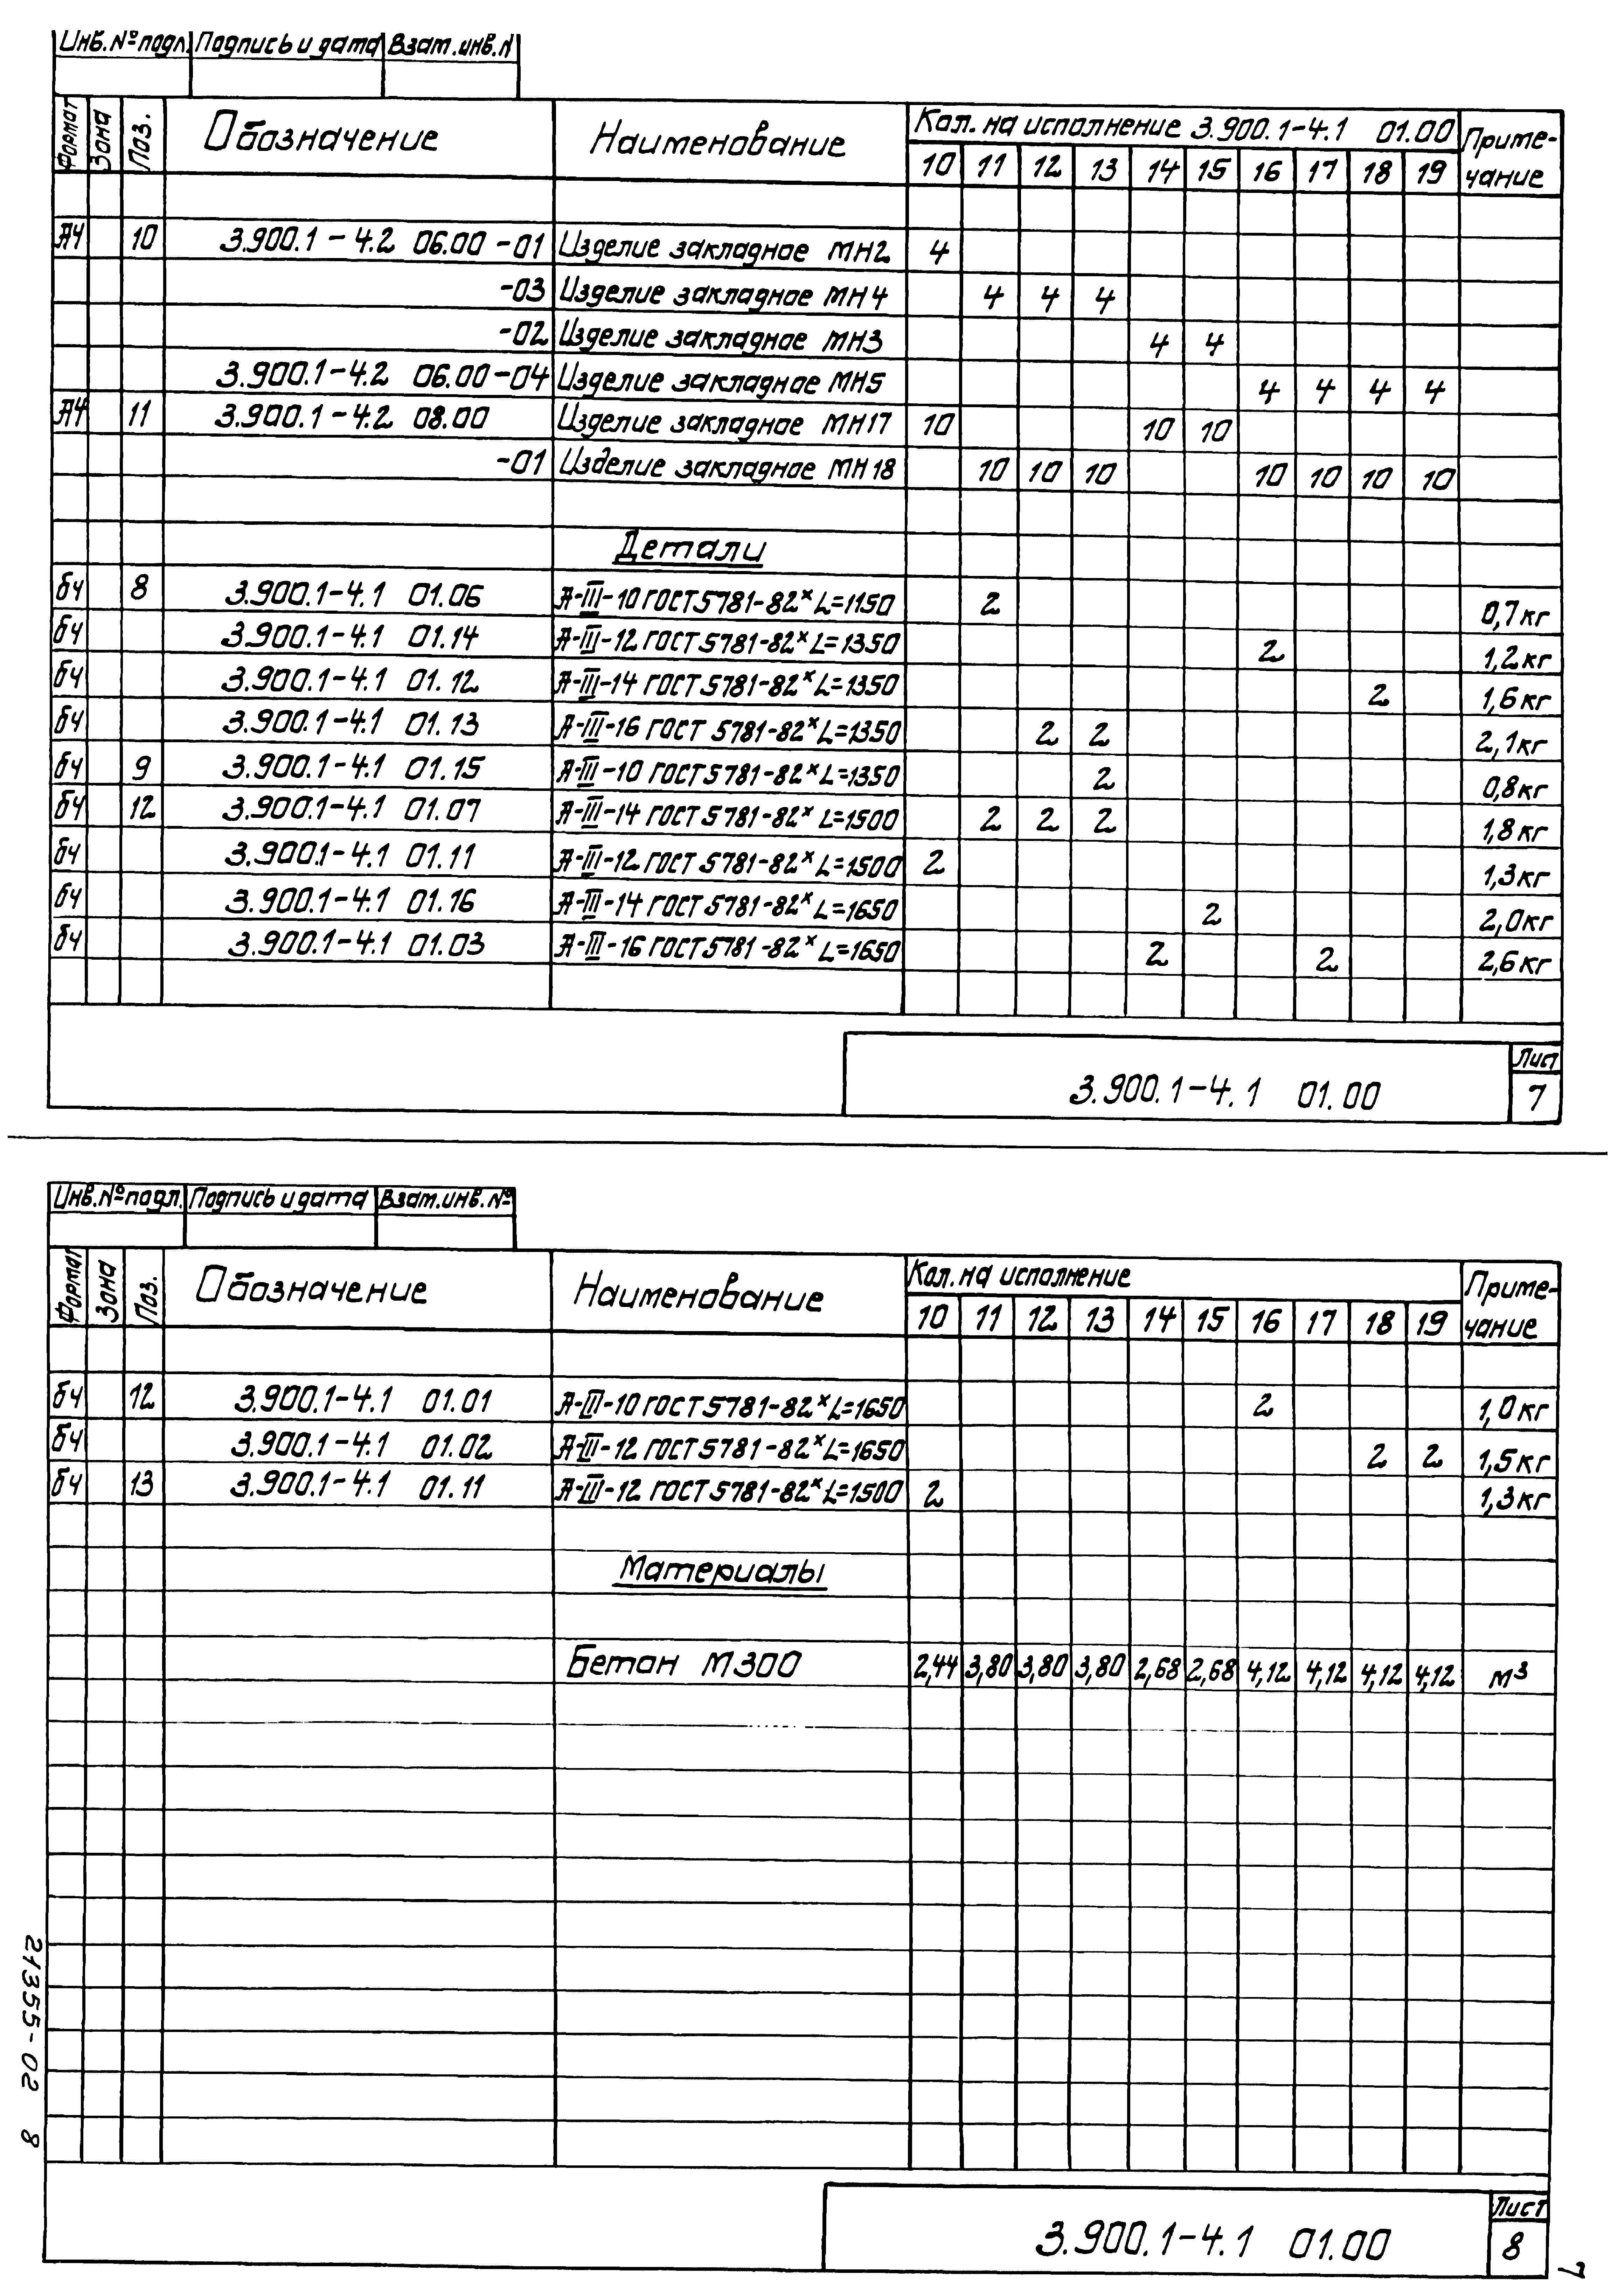 Инв. № подл. Подпись и дата Взам. инв. №
Формат Зона Поз. Обозначение Наименование Кол. на исполнение 3.900.1-4.1 01.00 Приме-
10 11 12 13 14 15 16 17 18 19 чание
А4 10 3.900.1-4.2 06.00-01 Изделие закладное МН2 4
-03 Изделие закладное МН4 4 4 4
-02 Изделие закладное МН3 4 4
3.900.1-4.2 06.00-04 Изделие закладное МН5 4 4 4 4
А4 11 3.900.1-4.2 08.00 Изделие закладное МН17 10 10 10
-01 Изделие закладное МН18 10 10 10 10 10 10 10
Детали
бч 8 3.900.1-4.1 01.06 А-III-10 ГОСТ 5781-82ˣ L=1150 2 0,7кг
бч 3.900.1-4.1 01.14 А-III-12 ГОСТ 5781-82ˣ L=1350 2 1,2кг
бч 3.900.1-4.1 01.12 А-III-14 ГОСТ 5781-82ˣ L=1350 2 1,6кг
бч 3.900.1-4.1 01.13 А-III-16 ГОСТ 5781-82ˣ L=1350 2 2 2,1кг
бч 9 3.900.1-4.1 01.15 А-III-10 ГОСТ 5781-82ˣ L=1350 2 0,8кг
бч 12 3.900.1-4.1 01.07 А-III-14 ГОСТ 5781-82ˣ L=1500 2 2 2 1,8кг
бч 3.900.1-4.1 01.11 А-III-12 ГОСТ 5781-82ˣ L=1500 2 1,3кг
бч 3.900.1-4.1 01.16 А-III-14 ГОСТ 5781-82ˣ L=1650 2 2,0кг
бч 3.900.1-4.1 01.03 А-III-16 ГОСТ 5781-82ˣ L=1650 2 2 2,6кг
Лист
3.900.1-4.1 01.00 7
Инв. № подл. Подпись и дата Взам. инв. №
Формат Зона Поз. Обозначение Наименование Кол. на исполнение Приме-
10 11 12 13 14 15 16 17 18 19 чание
бч 12 3.900.1-4.1 01.01 А-III-10 ГОСТ 5781-82ˣ L=1650 2 1,0кг
бч 3.900.1-4.1 01.02 А-III-12 ГОСТ 5781-82ˣ L=1650 2 2 1,5кг
бч 13 3.900.1-4.1 01.11 А-III-12 ГОСТ 5781-82ˣ L=1500 2 1,3кг
Материалы
Бетон М300 2,44 3,80 3,80 3,80 2,68 2,68 4,12 4,12 4,12 4,12 м³
21355-02 8
Лист
3.900.1-4.1 01.00 8
7